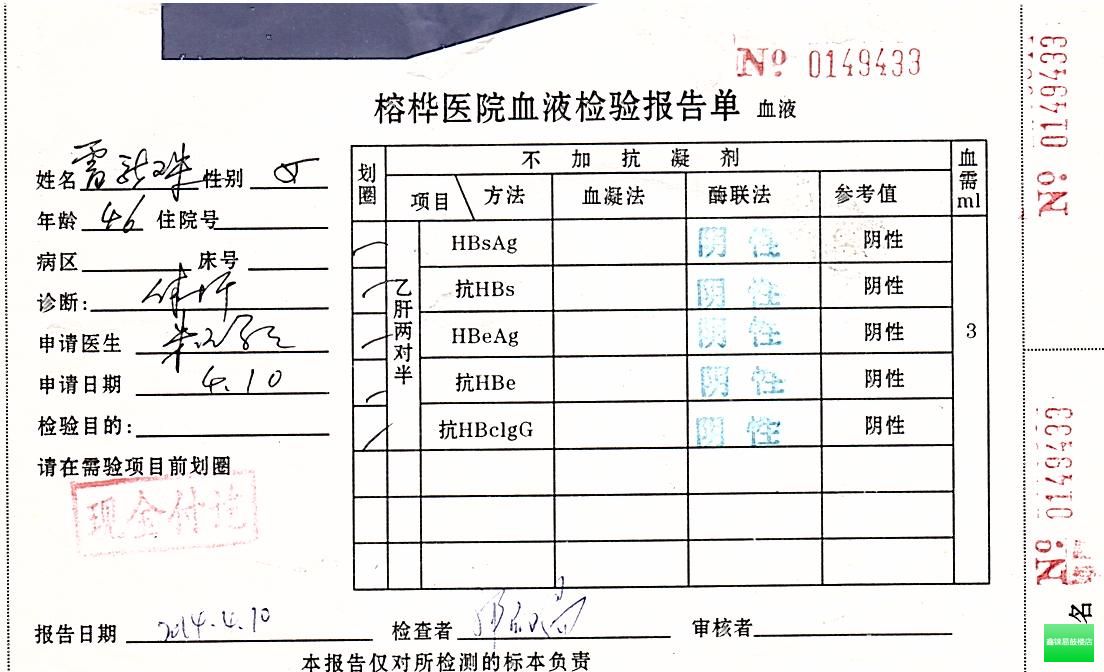 No 0149433
榕桦医院血液检验报告单 血液
姓名 性别 女
年龄 46 住院号
病区 床号
诊断:
申请医生
申请日期 4.10
检验目的:
请在需验项目前划圈
现金付讫
划圈 不加抗凝剂 血需ml
项目 方法 血凝法 酶联法 参考值
乙肝两对半
HBsAg 阴性 阴性
抗HBs 阴性 阴性
HBeAg 阴性 阴性
3
抗HBe 阴性 阴性
抗HBclgG 阴性 阴性
报告日期 2014.4.10 检查者 审核者
本报告仅对所检测的标本负责
No 0149433
No 0149433
名
鑫锦易鼓楼店